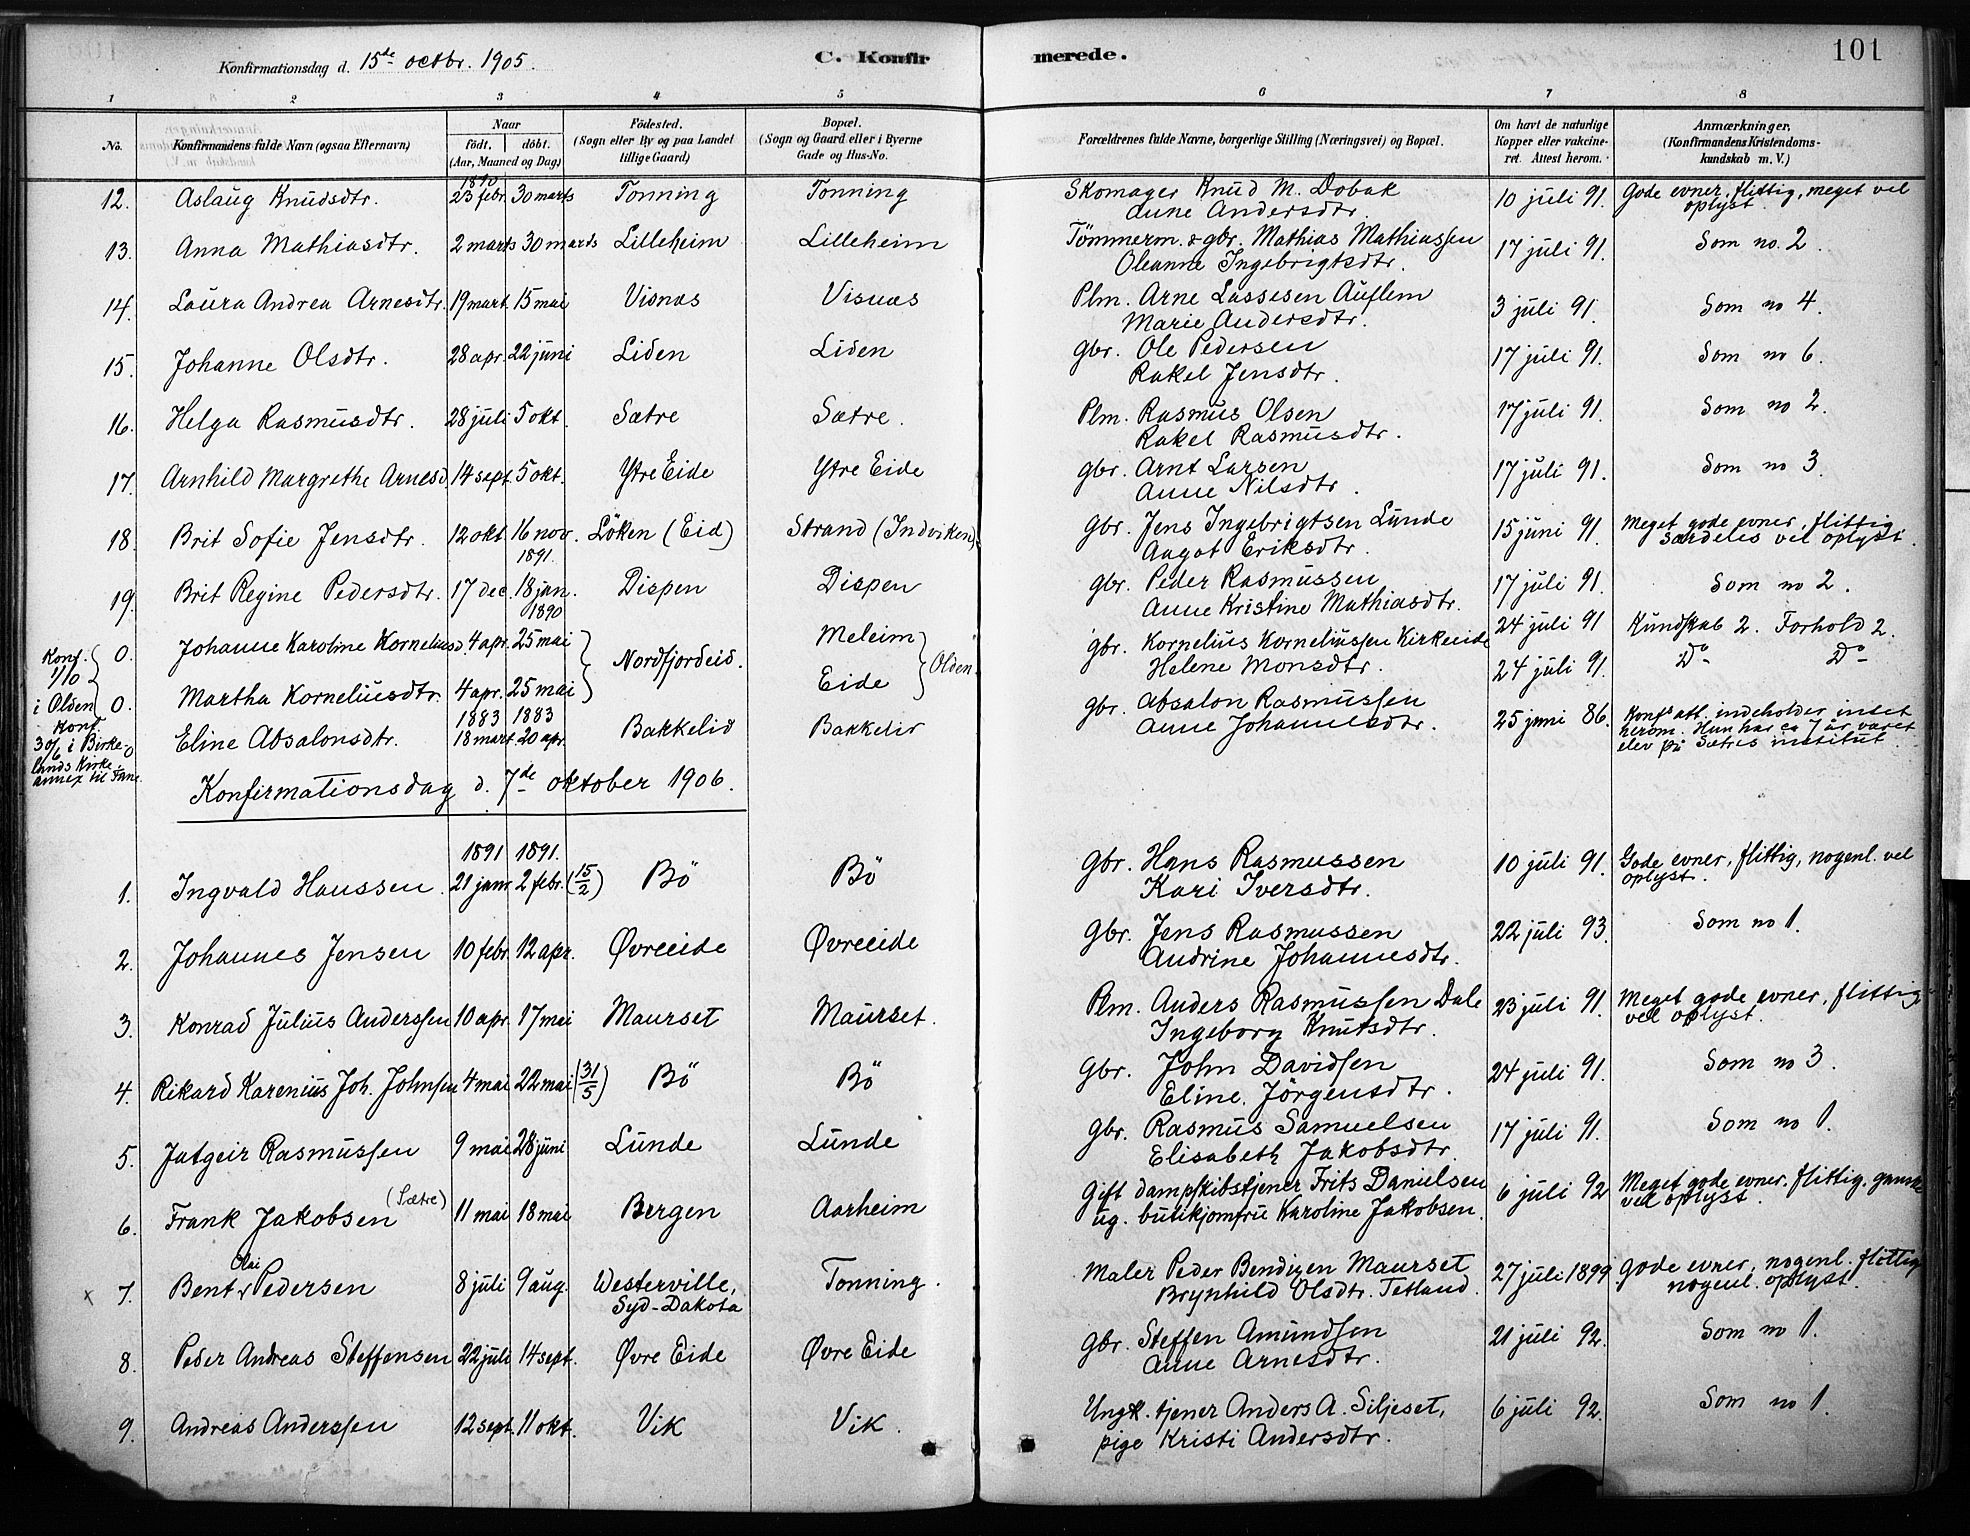 101
Konfirmationsdag d. 15de octbr. 1905.
C. Konfirmerede.
1 2 3 4 5 6 7 8
No. Konfirmandens fulde Navn (ogsaa Efternavn) Naar Födt. döbt. (Aar, Maaned og Dag) Födested. (Sogn eller By og paa Landet tillige Gaard) Bopæl. (Sogn og Gaard eller i Byerne Gade og Hus-No.) Forældrenes fulde Navne, borgerlige Stilling (Næringsvei) og Bopæl. Om havt de naturlige Kopper eller vaccineret. Attest herom. Anmærkninger. (Konfirmandens Kristendomskundskab m. V.)
1890
12. Aslaug Knudsdtr. 23 febr. 30 marts Tonning Tonning Skomager Knud M. Dobak 10 juli 91. Gode evner, flittig, meget vel
Lune Andersdtr. oplyst.
13. Anna Mathiasdtr. 2 marts 30 marts Lilleheim Lilleheim Tömmerm. & gbr. Mathias Mathiassen 17 juli 91. Som no. 2.
Oleanne Ingebrigtsdtr.
14. Laura Andrea Arnesdtr. 19 mart. 15 mai Visnæs Visnæs Plm. Arne Lassesen Auflem 3 juli 91. Som no 4.
Marie Andersdtr.
15. Johanne Olsdtr. 28 apr. 22 juni Liden Liden gbr. Ole Pedersen 17 juli 91. Som no 6.
Rakel Jensdtr.
16. Helga Rasmusdtr. 28 juli 5 okt. Sætre Sætre. Plm. Rasmus Olsen 17 juli 91. Som no 2.
Rakel Rasmusdtr.
17. Arnhild Margrethe Arnesd. 14 sept. 5 okt. Ytre Eide Ytre Eide gbr. Arnt Larsen 17 juli 91. Som no 3.
Anne Nilsdtr.
18. Brit Sofie Jensdtr. 12 okt. 16 nov. Löken (Eid) Strand (Indviken) gbr. Jens Ingebrigtsen Lunde 15 juni 91. Meget gode evner, flittig,
Angot Eriksdtr. særdeles vel oplyst.
1891.
19. Brit Regine Pedersdtr. 17 dec. 18 jan. Dispen Dispen gbr. Peder Rasmussen 17 juli 91. Som no 2.
Anne Kristine Mathiasdtr.
1890
Konf. 1/10 i Olden
0. Johanne Karoline Kornelius d. 4 apr. 25 mai Nordfjordeid. Meleim Olden gbr. Kornelius Korneliussen Kirkeeide 24 juli 91 Kundskab 2. Forhold 2.
Helene Monsdtr.
0. Martha Korneliusdtr. 4 apr. 25 mai Eide 24 juli 91. Do Do
1883 1883
Konf 30/6 i Birkelands Kirke annex til
0 Eline Absalonsdtr. 18 mart. 20 apr. Bakkelid Bakkelid gbr. Absalon Rasmussen 25 juni 86. Konf.att. indeholder intet
Anne Johannesdtr. herom. Hun har ca 7 år været
elev på Sætres institut.
Konfirmationsdag d. 7de oktober 1906.
1891 1891.
1. Ingvald Hanssen. 21 janr. 2 febr. (15/2) Bö Bö Gbr. Hans Rasmussen 10 juli 91. Gode evner, flittig, nogenl. vel
Kari Iversdtr. oplyst.
2. Johannes Jensen 10 febr. 12 apr. Øvreeide Øvreeide Gbr. Jens Rasmussen 22 juli 93. Som no 1.
Andrine Johannesdtr.
3. Konrad Julius Anderssen 10 apr. 17 mai Maurset Maurset. Plm. Anders Rasmussen Dale 23 juli 91. Meget gode evner, flittig,
Ingeborg Knutsdtr. vel oplyst.
4. Rikard Karenius Joh. Johnsen 4 mai 22 mai (31/5) Bö Bö Gbr. John Davidsen 24 juli 91. Som no 3.
Eline Jörgensdtr.
5. Jatgeir Rasmussen 9 mai 28 juni Lunde Lunde gbr. Rasmus Samuelsen 17 juli 91. Som no 1.
Elisabeth Jakobsdtr.
(Sætre)
6. Frank Jakobsen 11 mai 18 mai Bergen Aarheim Gift dampskibstjener Frits Danielsen 6 juli 92 Meget gode evner. flittig. ganske
ug. butikjomfru Karoline Jakobsen. vel oplyst.
Olai
x 7. Bent Pedersen 8 juli 9 aug. Westerville, Syd-Dakota Tonning. Maler Peder Bendixen Maurset 27 juli 1899 Gode evner, nogenl. flittig
Brynhild Olsdtr. Tetland nogenl. oplyst.
8. Peder Andreas Steffensen 22 juli 14 sept. Øvre Eide Øvre Eide gbr. Steffen Amundsen 21 juli 92. Som no 1.
Anne Arnesdtr.
9. Andreas Anderssen 12 sept. 11 okt. Vik Vik. Ungk. tjener Anders A. Siljeset, 6 juli 92. Som no 1.
pige Kristi Andersdtr.